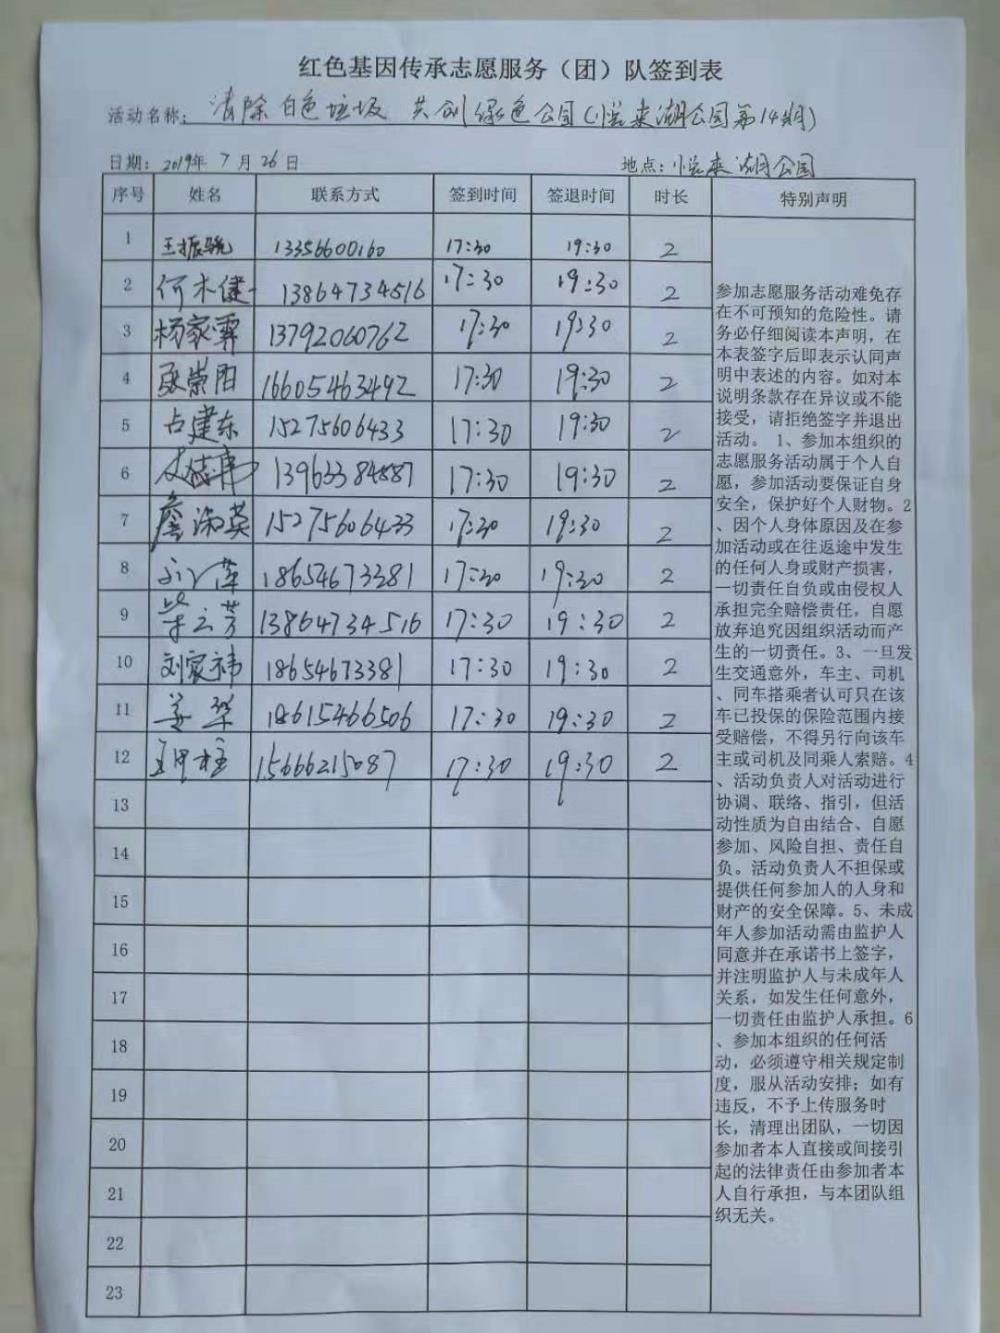 红色基因传承志愿服务（团）队签到表
活动名称：清除白色垃圾 共创绿色公园（悦来湖公园第14期）
日期：2019年7月26日 地点：悦来湖公园
序号 姓名 联系方式 签到时间 签退时间 时长 特别声明
1 王振骁 13356600160 17:30 19:30 2
2 何木健 13864734516 17:30 19:30 2
3 杨家霖 13792060762 17:30 19:30 2
4 张崇阳 16605463492 17:30 19:30 2
5 占建东 15275606433 17:30 19:30 2
6 13963384887 17:30 19:30 2
7 詹淑英 15275606433 17:30 19:30 2
8 18654673381 17:30 19:30 2
9 柴云芳 13864734516 17:30 19:30 2
10 刘家祎 18654673381 17:30 19:30 2
11 姜 18615466506 17:30 19:30 2
12 15666215087 17:30 19:30 2
13
14
15
16
17
18
19
20
21
22
23
参加志愿服务活动难免存
在不可预知的危险性。请
务必仔细阅读本声明，在
本表签字后即表示认同声
明中表述的内容。如对本
说明条款存在异议或不能
接受，请拒绝签字并退出
活动。 1、参加本组织的
志愿服务活动属于个人自
愿，参加活动要保证自身
安全，保护好个人财物。2
、因个人身体原因及在参
加活动或在往返途中发生
的任何人身或财产损害，
一切责任自负或由侵权人
承担完全赔偿责任，自愿
放弃追究因组织活动而产
生的一切责任。3、一旦发
生交通意外，车主、司机
、同车搭乘者认可只在该
车已投保的保险范围内接
受赔偿，不得另行向该车
主或司机及同乘人索赔。4
、活动负责人对活动进行
协调、联络、指引，但活
动性质为自由结合、自愿
参加、风险自担、责任自
负。活动负责人不担保或
提供任何参加人的人身和
财产的安全保障。5、未成
年人参加活动需由监护人
同意并在承诺书上签字，
并注明监护人与未成年人
关系，如发生任何意外，
一切责任由监护人承担。6
、参加本组织的任何活
动，必须遵守相关规定制
度，服从活动安排；如有
违反，不予上传服务时
长，清理出团队，一切因
参加者本人直接或间接引
起的法律责任由参加者本
人自行承担，与本团队组
织无关。